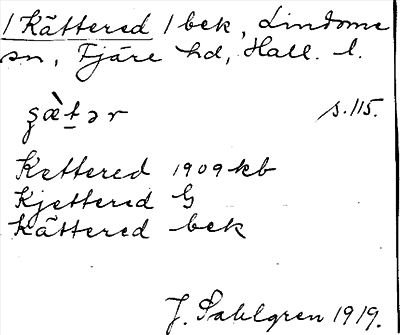 / Kättered / bek, Lindome
sn, Fjäre hd, Hall. l.
s.115.
Kettered 1909 kb
Kjettered G
Kättered bek
J. Sahlgren 1919.